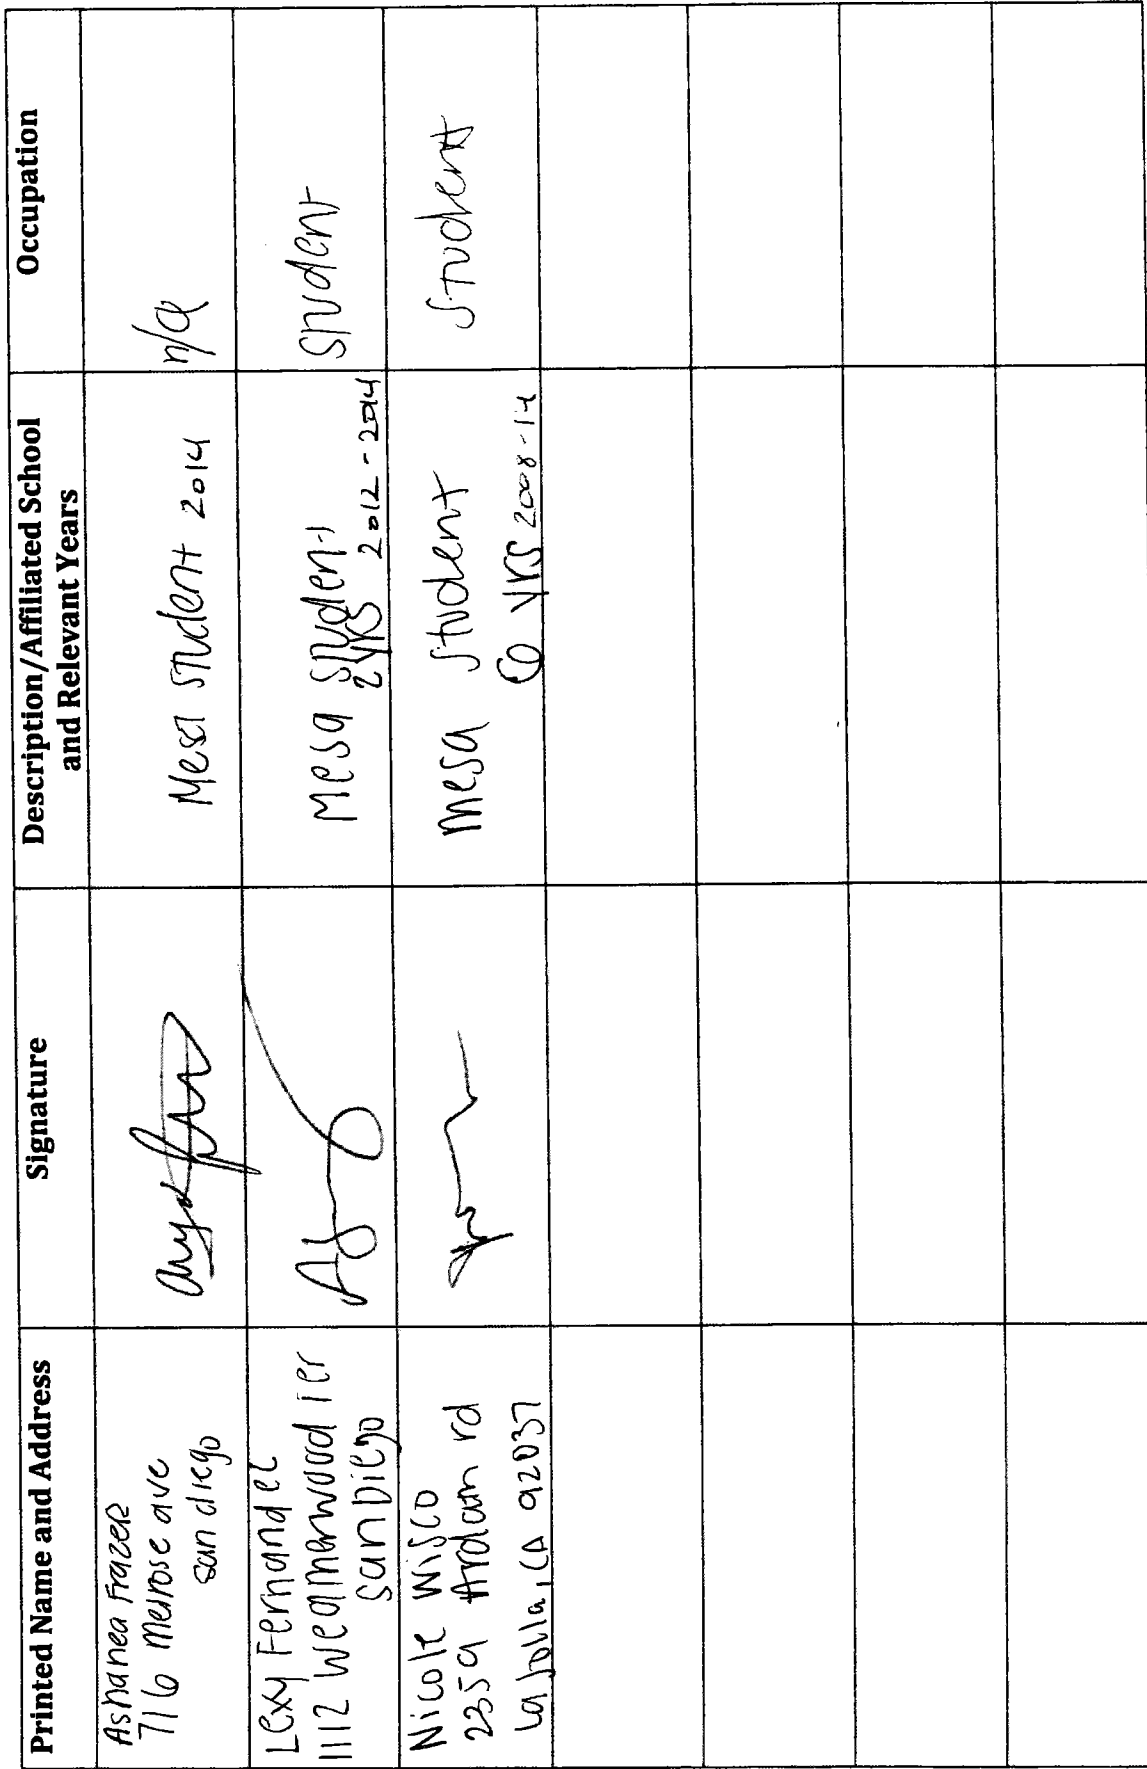 Printed Name and Address
Signature
Description/Affiliated School
and Relevant Years
Occupation
Ashanea Frazer
716 Melrose ave
san diego
Mesa Student 2014
n/a
Lexy Fernandez
1112
San Diego
Mesa Student
2 YRS 2012 - 2014
Student
Nicole Wisco
2359 Ardath rd
La Jolla, CA 92037
Mesa Student
6 YRS 2008-14
Student